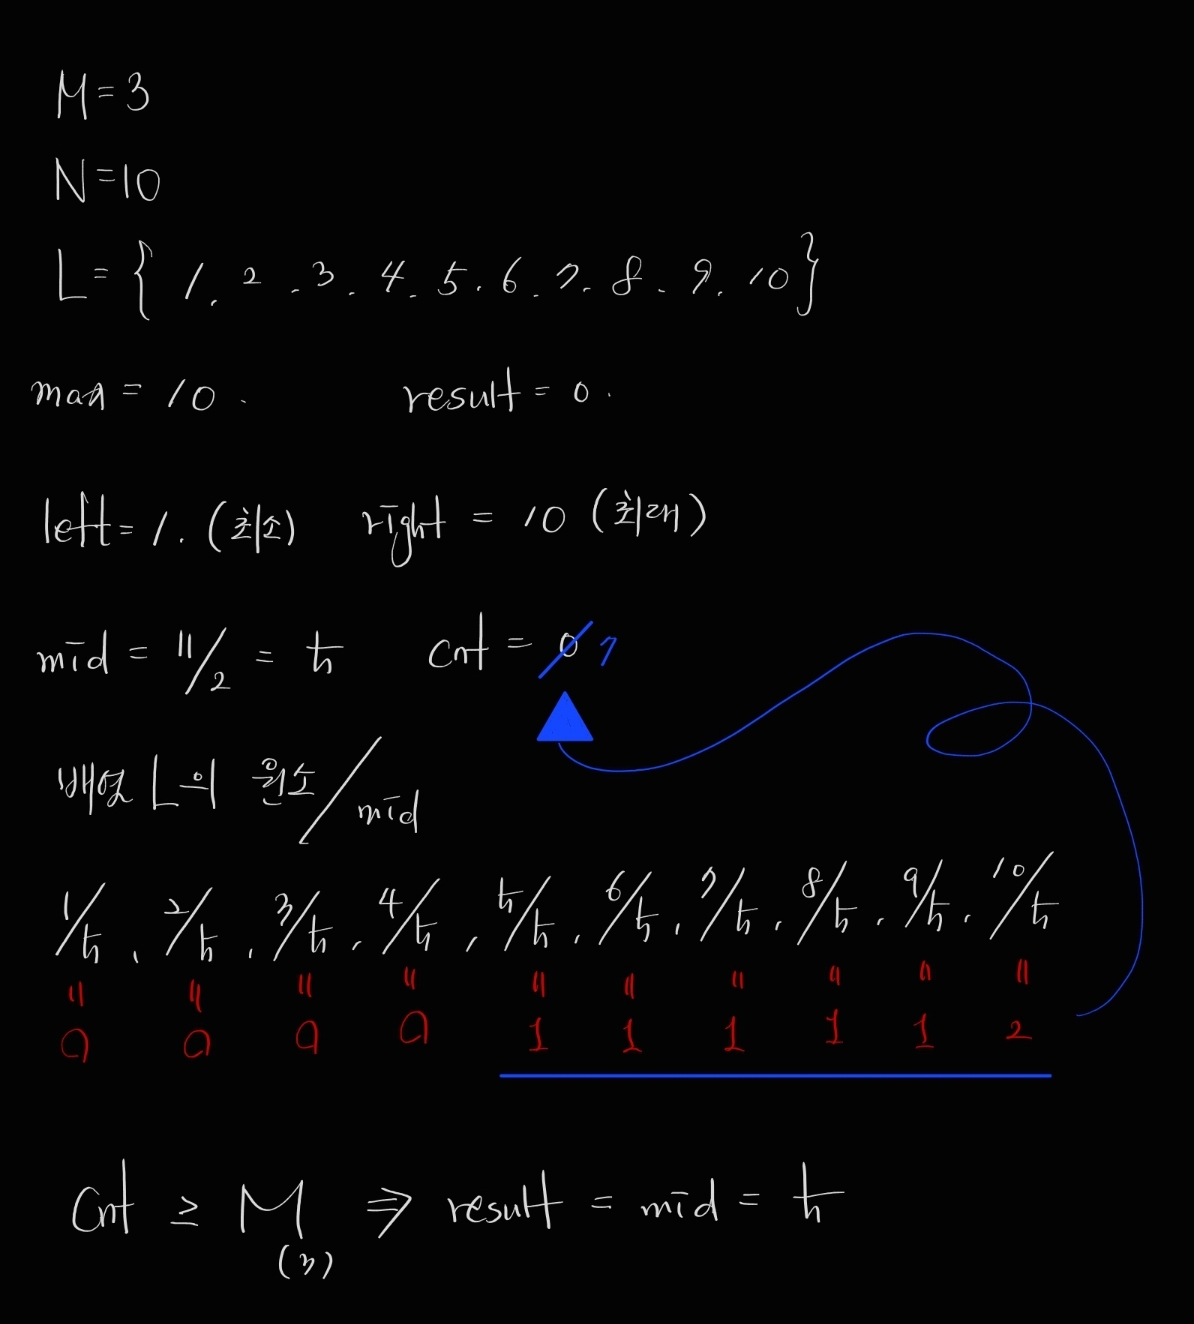 M=3
N=10
L= { 1. 2. 3. 4. 5. 6. 7. 8. 9. 10}
max = 10. result = 0.
left = 1. (최소) right = 10 (최대)
mid = 11/2 = 5 cnt = 0 7
배열 L의 원소/mid
1/5, 2/5, 3/5, 4/5, 5/5, 6/5, 7/5, 8/5, 9/5, 10/5
= = = = = = = = = =
0 0 0 0 1 1 1 1 1 2
Cnt ≥ M ⇒ result = mid = 5
(3)